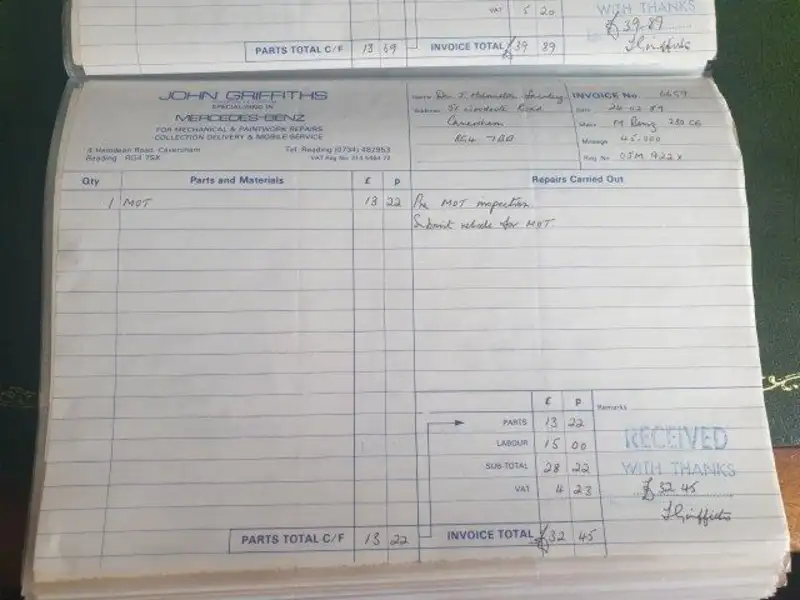 VAT 5 20
WITH THANKS
£39.89
J Griffiths
PARTS TOTAL C/F 13 69 INVOICE TOTAL £39 89
JOHN GRIFFITHS
SPECIALISING IN
MERCEDES-BENZ
FOR MECHANICAL & PAINTWORK REPAIRS
COLLECTION DELIVERY & MOBILE SERVICE
Hemdean Road, Caversham
Reading RG4 7SX
Tel: Reading (0734) 482953
VAT Reg No
Dr. J.
Address Road
Caversham
RG4 7BD
INVOICE No. 6659
Date 24-02-89
Make M Benz 280 CE
Mileage 45.000
Reg No OJM 922X
Qty Parts and Materials £ p Repairs Carried Out
1 MOT 13 22 Pre MOT inspection
Submit vehicle for MOT
£ p
Remarks
PARTS 13 22
LABOUR 15 00
SUB-TOTAL 28 22
VAT 4 23
RECEIVED
WITH THANKS
£32 45
J Griffiths
PARTS TOTAL C/F 13 22 INVOICE TOTAL £32 45